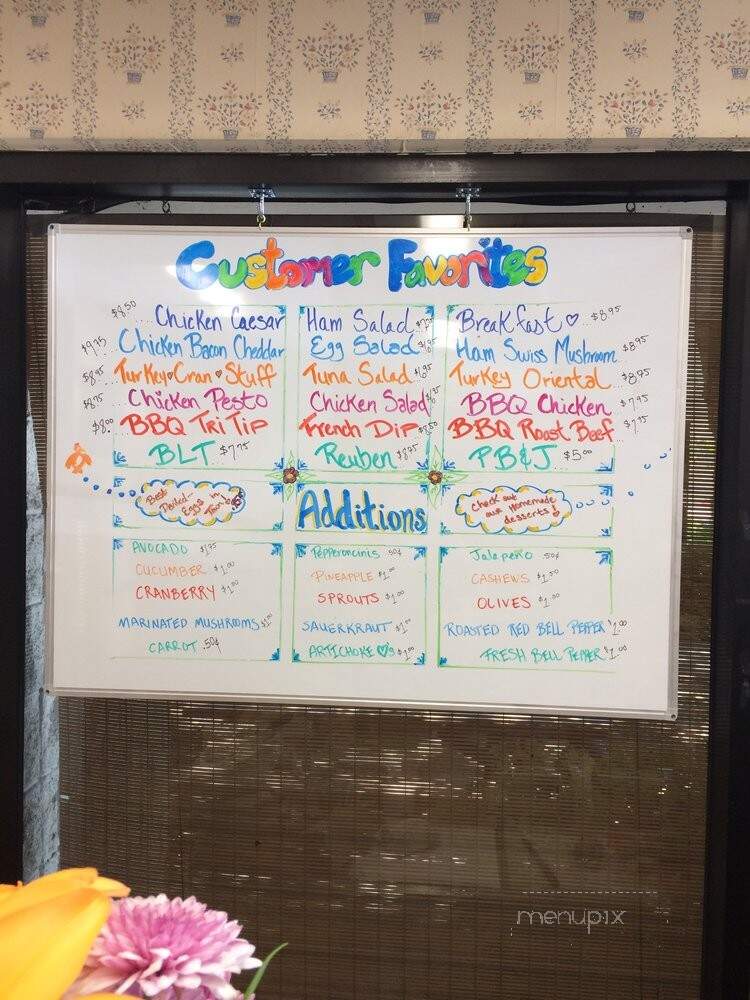 Customer Favorites
$8.50 Chicken Caesar
Chicken Bacon Cheddar
$8.95 Turkey Cran Stuff
$8.75 Chicken Pesto
$8.00 BBQ Tri Tip
BLT $7.75
Ham Salad
Egg Salad
Tuna Salad
Chicken Salad
French Dip
Reuben $8.75
Breakfast ♡ $8.95
Ham Swiss Mushroom $8.95
Turkey Oriental $8.95
BBQ Chicken $7.95
BBQ Roast Beef
PB&J $5.00
Best
Eggs in
Town!
Additions
Check out
our Homemade
desserts!
AVOCADO $1.75
CUCUMBER $1.00
CRANBERRY $1.00
MARINATED MUSHROOMS $1.00
CARROT .50¢
Pepperoncinis .50¢
PINEAPPLE $1.00
SPROUTS $1.00
SAUERKRAUT $1.00
ARTICHOKE ♡'s $1.00
Jalapeño .50¢
CASHEWS $1.50
OLIVES $1.00
ROASTED RED BELL PEPPER $1.00
FRESH BELL PEPPER $1.00
menupix